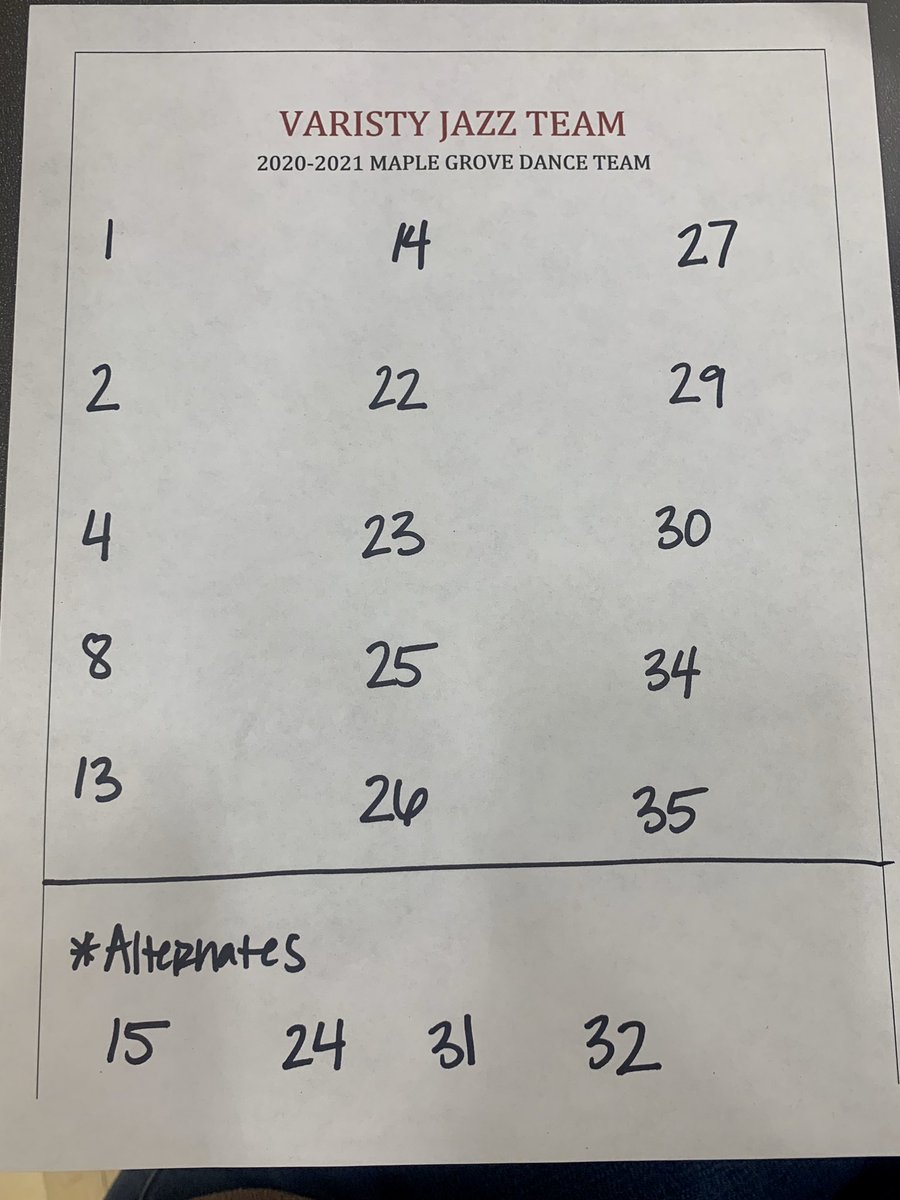 VARISTY JAZZ TEAM
2020-2021 MAPLE GROVE DANCE TEAM
1 14 27
2 22 29
4 23 30
8 25 34
13 26 35
*Alternates
15 24 31 32